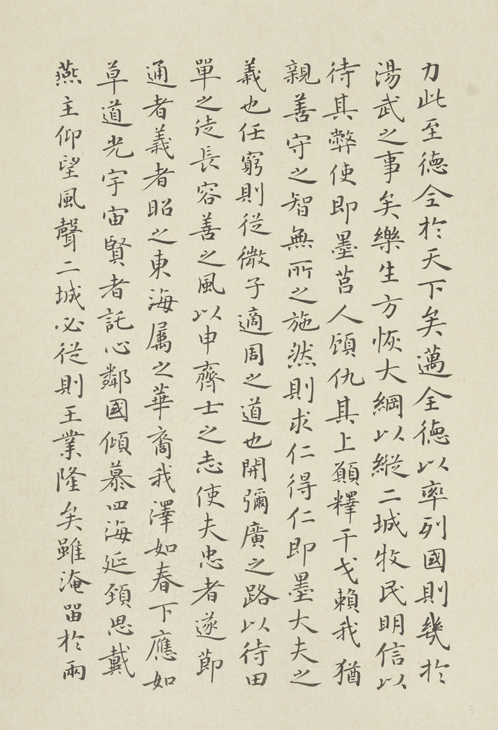 力此至德全於天下矣邁全德以率列國則幾於
湯武之事矣樂生方恢大綱以縱二城牧民明信以
待其弊使即墨莒人顧仇其上願釋干戈賴我猶
親善守之智無所之施然則求仁得仁即墨大夫之
義也任窮則從微子適周之道也開彌廣之路以待田
單之徒長容善之風以申齊士之志使夫忠者遂節
通者義著昭之東海屬之華裔我澤如春下應如
草道光宇宙賢者託心鄰國傾慕四海延頸思戴
燕主仰望風聲二城必從則王業隆矣雖淹留於兩